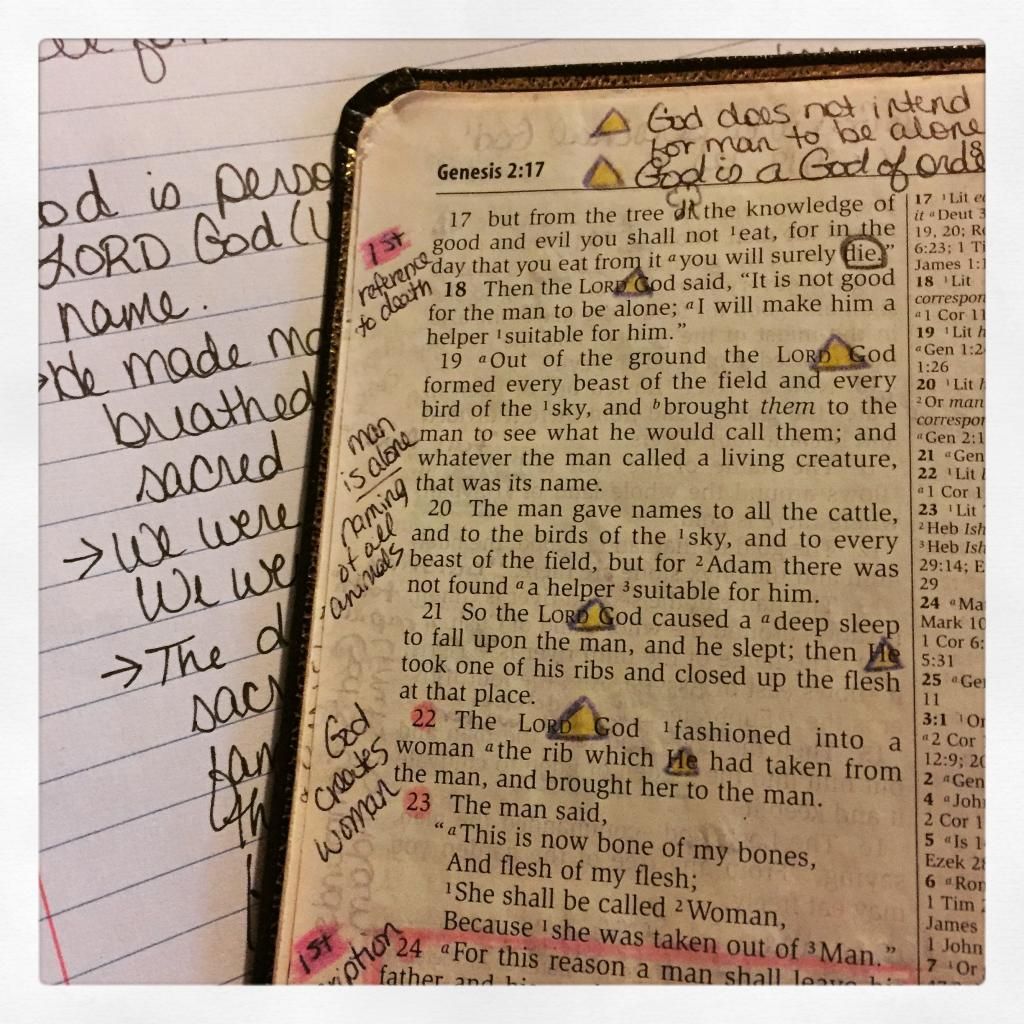 God does not intend
for man to be alone
God is a God of
Genesis 2:17
17 but from the tree of the knowledge of
good and evil you shall not ¹eat, for in the
day that you eat from it ᵃyou will surely die."
18 Then the LORD God said, "It is not good
for the man to be alone; ᵃI will make him a
helper ¹suitable for him."
19 ᵃOut of the ground the LORD God
formed every beast of the field and every
bird of the ¹sky, and ᵇbrought them to the
man to see what he would call them; and
whatever the man called a living creature,
that was its name.
20 The man gave names to all the cattle,
and to the birds of the ¹sky, and to every
beast of the field, but for ²Adam there was
not found ᵃa helper ³suitable for him.
21 So the LORD God caused a ᵃdeep sleep
to fall upon the man, and he slept; then He
took one of his ribs and closed up the flesh
at that place.
22 The LORD God ¹fashioned into a
woman ᵃthe rib which He had taken from
the man, and brought her to the man.
23 The man said,
"ᵃThis is now bone of my bones,
And flesh of my flesh;
¹She shall be called ²Woman,
Because ¹she was taken out of ³Man."
24 ᵃFor this reason a man shall leave
father and
1st
reference
to death
man
is alone
naming
of all
animals
God
creates
woman
1st
17 ¹Lit
it ᵃDeut
19, 20;
6:23; 1
James
18 ¹Lit
ᵃ1 Cor 11
19 ¹Lit
ᵃGen
1:26
20 ¹Lit
²Or man
ᵃGen 2:1
21 ᵃGen
22 ¹Lit
ᵃ1 Cor 1
23 ¹Lit
²Heb Ish
³Heb Ish
29:14;
29
24 ᵃ
Mark 10
1 Cor 6:
5:31
25
11
3:1
ᵃ2 Cor
12:9;
2 ᵃGen
4
2 Cor 1
5 ᵃIs 1
Ezek
6
1 Tim
James
1 John
7 ¹Or
is
LORD God
name.
He made
breathed
sacred
→We were
We
→The